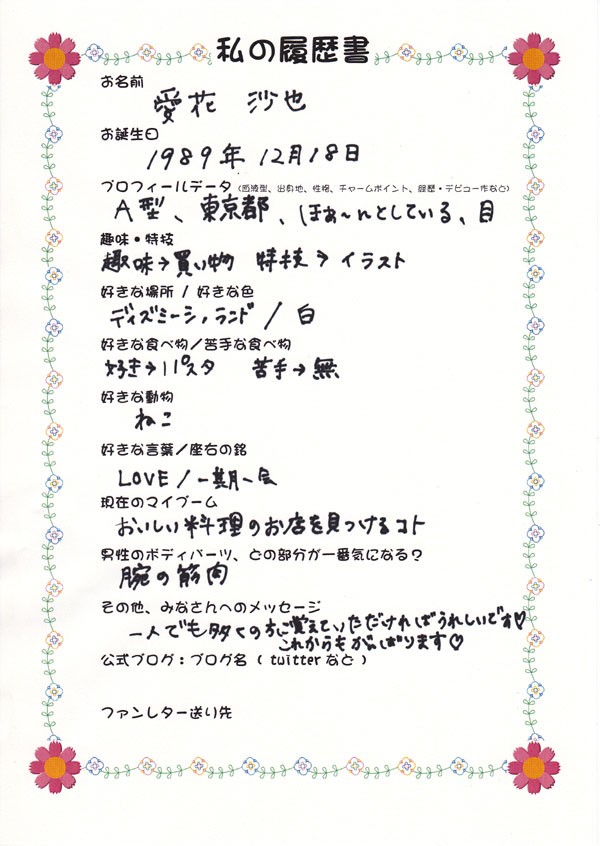 私の履歴書
お名前
愛花 沙也
お誕生日
1989年 12月18日
プロフィールデータ(血液型、出身地、性格、チャームポイント、経歴・デビュー作など)
A型、東京都、ほぁ〜んとしている、目
趣味・特技
趣味→買い物 特技→イラスト
好きな場所 / 好きな色
ディズニーシー,ランド / 白
好きな食べ物/苦手な食べ物
好き→パスタ 苦手→無
好きな動物
ねこ
好きな言葉/座右の銘
LOVE / 一期一会
現在のマイブーム
おいしい料理のお店を見つけるコト
男性のボディパーツ、どの部分が一番気になる?
腕の筋肉
その他、みなさんへのメッセージ
一人でも多くの方に覚えていただければうれしいです♡
これからもがんばります♡
公式ブログ:ブログ名 ( twitterなど )
ファンレター送り先